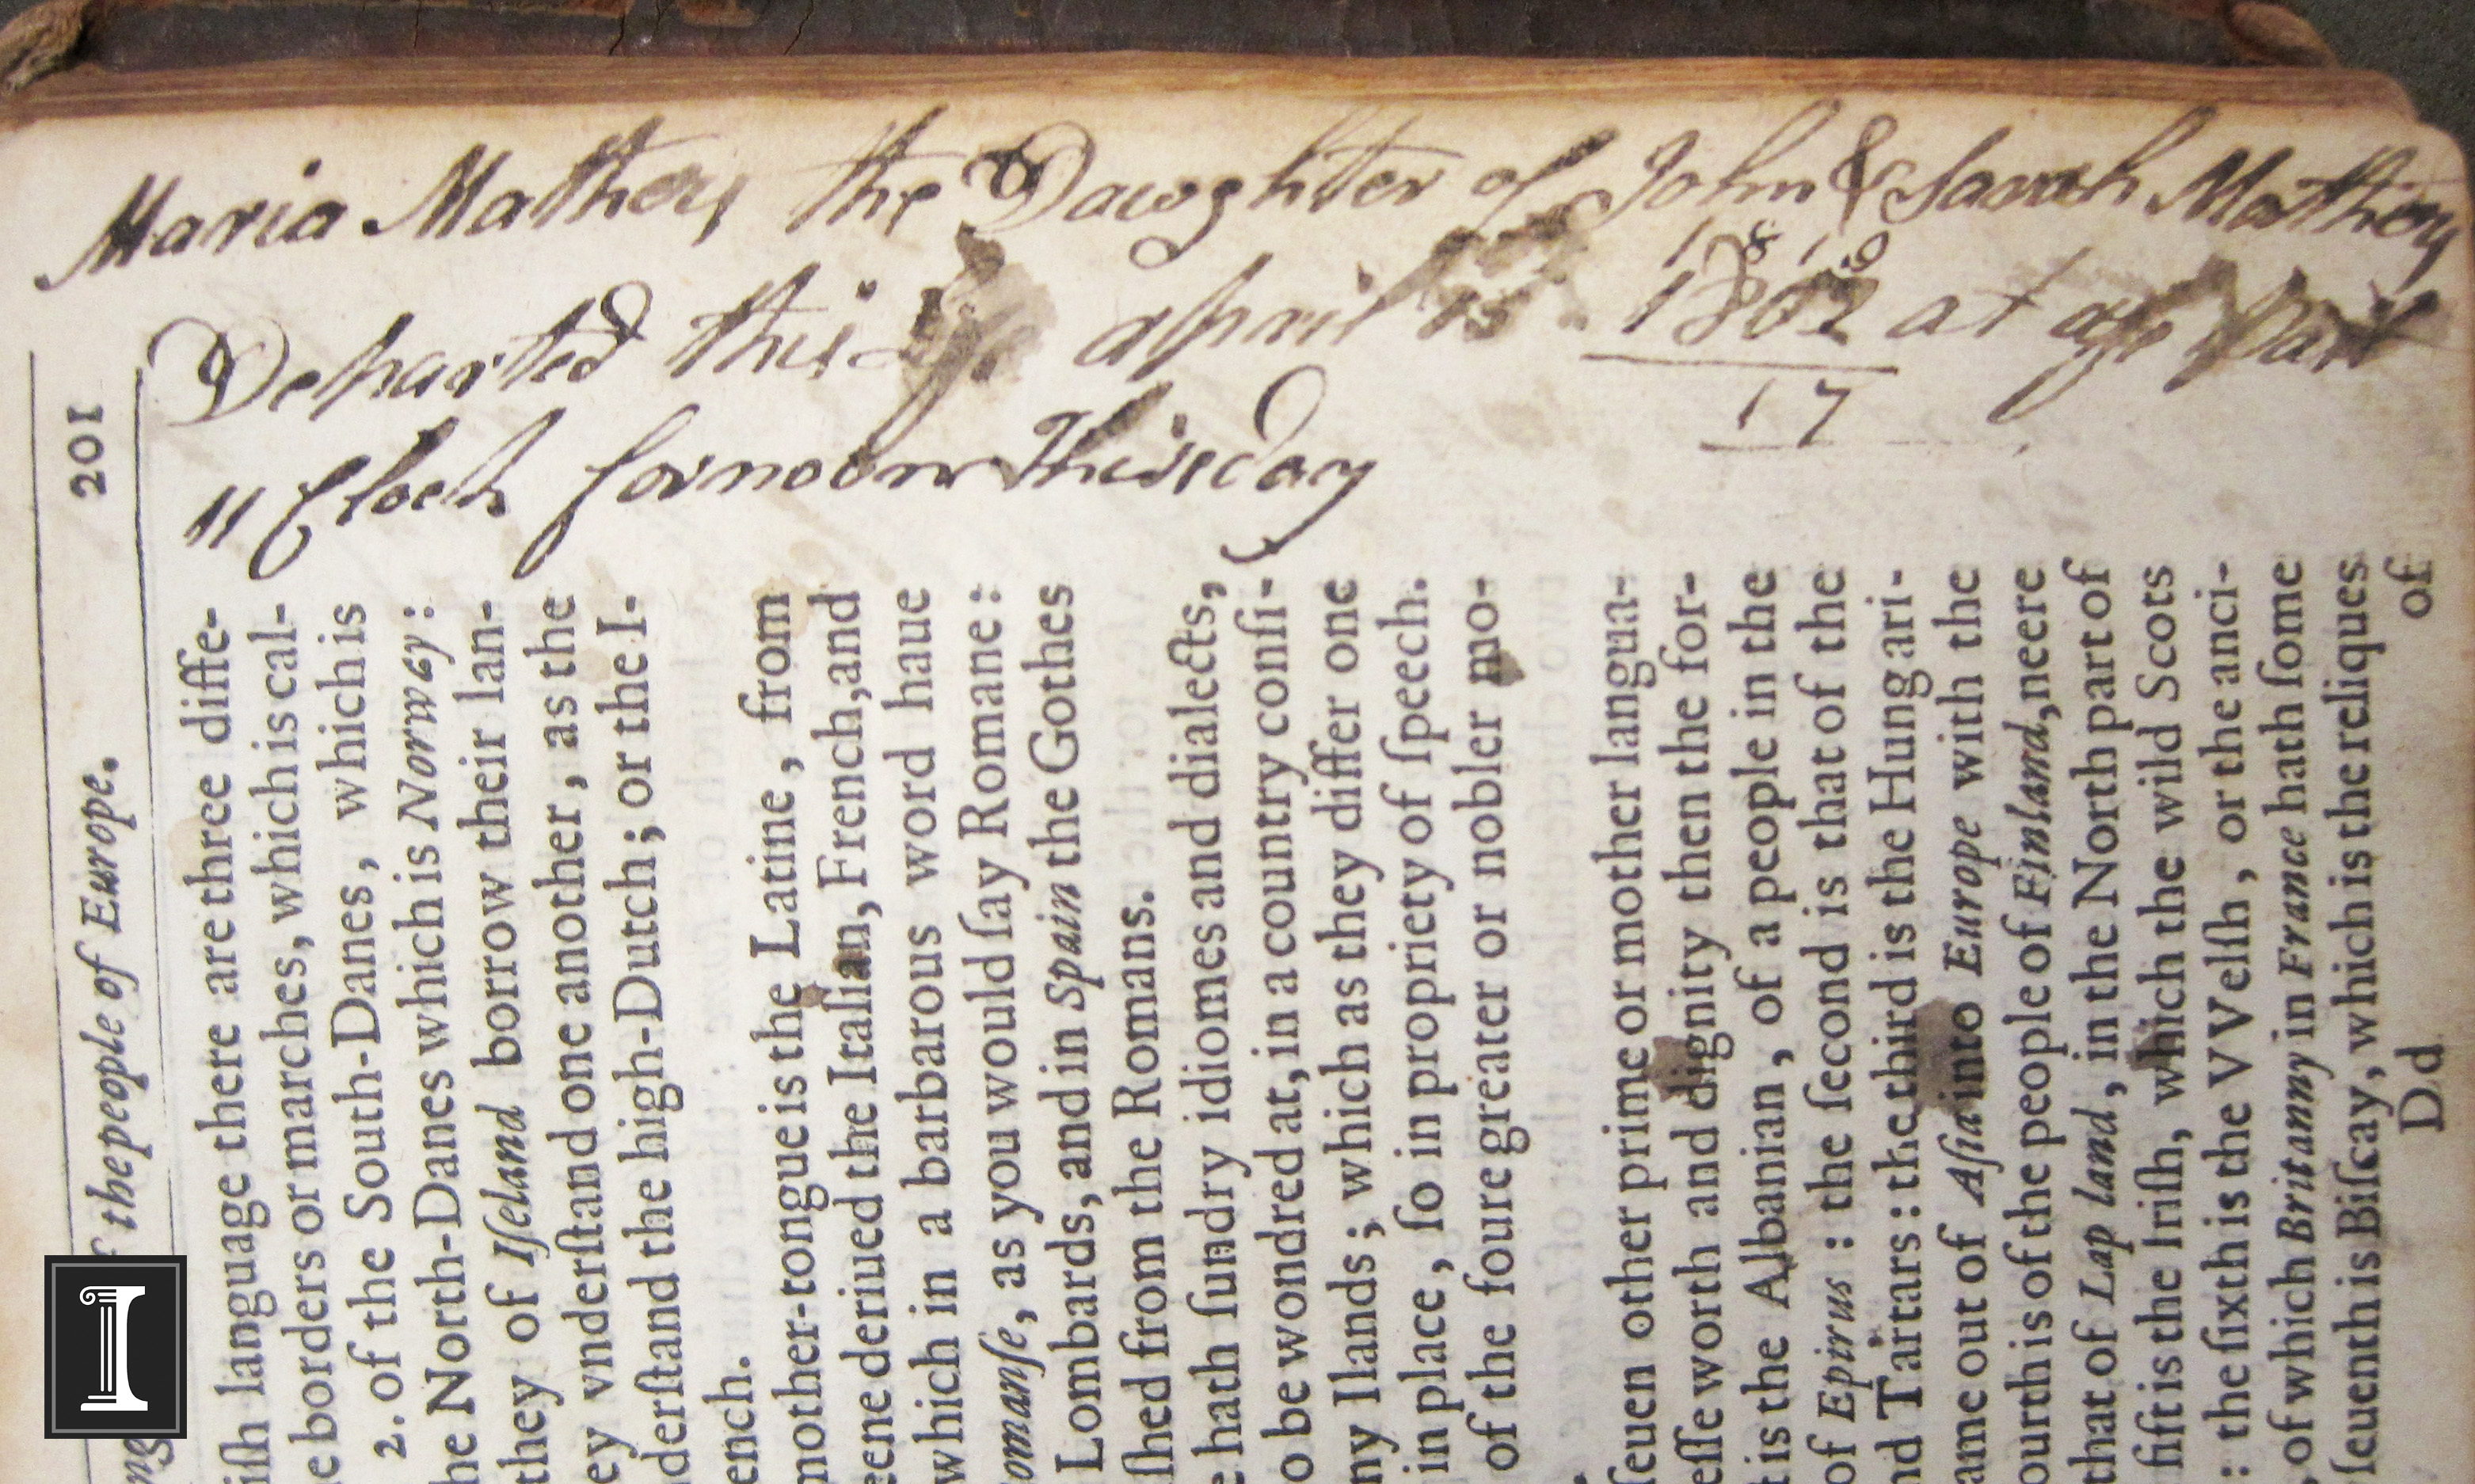 Maria Mathey the Dawghter of John & Sarah Mathey
1810
Departed this Life april 15 1802 at
17
11 Clock fornoon Thirsday
201
the people of Europe.
iſh language there are three diffe-
e borders or marches, which is cal-
2. of the South-Danes, which is
he North-Danes which is Norwey:
they of Iſeland borrow their lan-
ey vnderſtand one another, as the
derſtand the high-Dutch; or the I-
ench.
mother-tongue is the Latine, from
eene deriued the Italian, French, and
which in a barbarous word haue
omanſe, as you would ſay Romane:
Lombards, and in Spain the Gothes
ſhed from the Romans.
e hath ſundry idiomes and dialects,
o be wondred at, in a country conſi-
ny Ilands; which as they differ one
in place, ſo in propriety of ſpeech.
of the foure greater or nobler mo-
ſeuen other prime or mother langua-
eſſe worth and dignity then the for-
t is the Albanian, of a people in the
of Epirus: the ſecond is that of the
nd Tartars: the third is the Hungari-
ame out of Aſia into Europe with the
ourth is of the people of Finland, neere
that of Lap land, in the North part of
fift is the Iriſh, which the wild Scots
: the ſixth is the VVelſh, or the anci-
of which Britanny in France hath ſome
ſeuenth is Biſcay, which is the reliques
Dd of